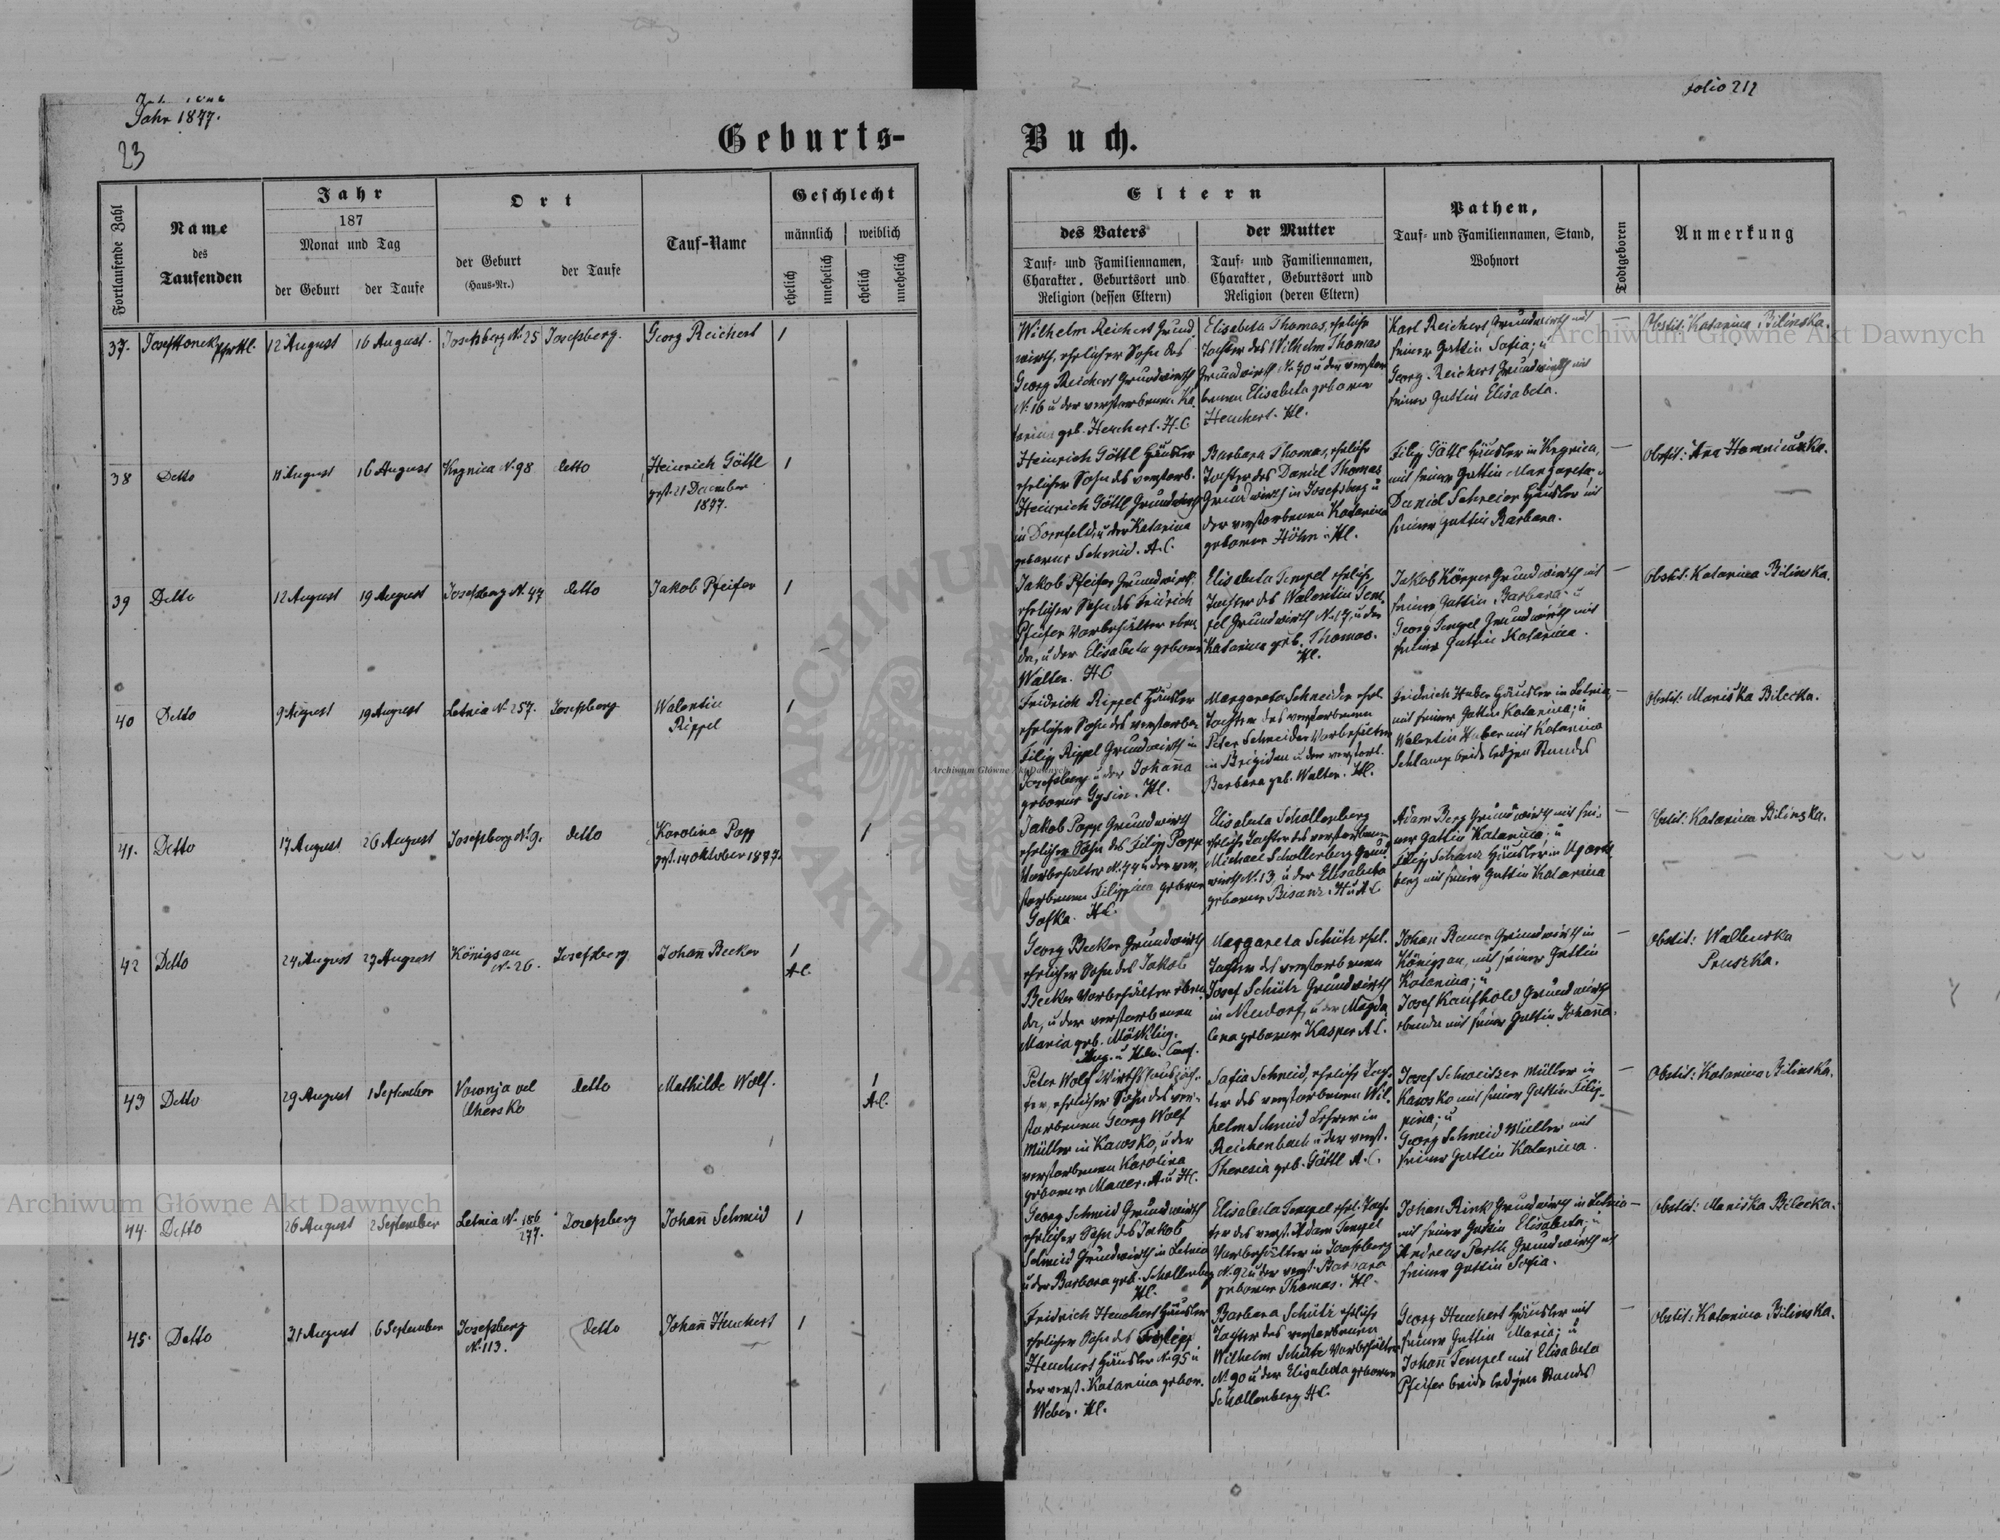 Jahr 1877.
23
folio 212
Geburts-
Buch.
Fortlaufende Zahl
Name
des
Taufenden
Jahr
187
Monat und Tag
der Geburt
der Taufe
Ort
der Geburt
(Haus-Nr.)
der Taufe
Tauf-Name
Geschlecht
männlich
weiblich
ehelich
unehelich
ehelich
unehelich
Eltern
des Vaters
Tauf- und Familiennamen,
Charakter, Geburtsort und
Religion (dessen Eltern)
der Mutter
Tauf- und Familiennamen,
Charakter, Geburtsort und
Religion (deren Eltern)
Pathen,
Tauf- und Familiennamen, Stand,
Wohnort
Todtgeboren
Anmerkung
37. 12 August 16 August Josefsberg N. 25 Josefsberg. Georg Reichert 1
Wilhelm Reichert Grund
wirth, ehelicher Sohn des
Georg Reichert Grundwirth
N. 16 u der verstorbenen Ka
tarina geb. Heuchert. H.C
Elisabeta Thomas, eheliche
Tochter des Wilhelm Thomas
Grundwirth N. 90 u der verstor
benen Elisabeta geborne
Heuchert. HC.
Karl Reichert, Grundwirth mit
seiner Gattin Sofia; u
Georg Reichert Grundwirth mit
seiner Gattin Elisabeta.
Obstit: Katarina Bilinska.
38 Detto 11 August 16 August Krynica N. 98 detto Heinrich Göttl 1
gest. 21 December
1877.
Heinrich Göttl Häusler
ehelicher Sohn des verstorb.
Heinrich Göttl Grundwirth
in Dornfeld, u der Katarina
geborne Schmid. A.C.
Barbara Thomas, eheliche
Tochter des Daniel Thomas
Grundwirth in Josefsberg u
der verstorbenen Katarina
geborne Höhn. HC.
Filip Göttl Häusler in Krynica,
mit seiner Gattin Margareta, u
Daniel Schreier Häusler mit
seiner Gattin Barbara.
Obstit:
39 Detto 12 August 19 August Josefsberg N. 47 detto Jakob Pfeifer 1
Jakob Pfeifer Grundwirth,
ehelicher Sohn des Fridrich
Pfeifer Vorbehälter eben
da, u der Elisabeta geborne
Walter. HC
Elisabeta Tempel eheliche
Tochter des Walentin Tem
pel Grundwirth N. 17, u der
Katarina geb. Thomas.
HC.
Jakob Körper Grundwirth mit
seiner Gattin Barbara u
Georg Tempel Grundwirth mit
seiner Gattin Katarina.
Obstit: Katarina Bilinska.
40 Detto 9 August 19 August Letnia N. 257. Josefsberg Walentin
Rippel
1
Fridrich Rippel Häusler
ehelicher Sohn des verstorbe
Filip Rippel Grundwirth in
Josefsberg u der Johanna
geborne Gysin. HC.
Margareta Schneider ehel.
Tochter des verstorbenen
Peter Schneider Vorbehälter
in Brigidau u der verstorb.
Barbara geb. Walter. HC.
Fridrich Huber Häusler in Letnia
mit seiner Gattin Katarina; u
Walentin Huber mit Katarina
Schlamp beide ledigen Standes
Obstit: Mariska Bilecka.
41. Detto 17 August 26 August Josefsberg N. 9. detto Karolina Popp 1
gest. 14 Oktober 1877.
Jakob Popp Grundwirth
ehelicher Sohn des Filip Popp
Vorbehälter N. 74 u der ver
storbenen Filippina geborne
Gafka. HC.
Elisabeta Schollenberg
eheliche Tochter des verstorbenen
Michael Schollenberg Grund
wirth N. 13, u der Elisabeta
geborne Bisanz. H u A C
Adam Berg Grundwirth mit sei
ner Gattin Katarina; u
Filip Schanz Häusler in Ugarts
berg mit seiner Gattin Katarina
Obstit: Katarina Bilinska.
42 Detto 24 August 27 August Königsau Josefsberg Johann Becker 1
N. 26. A.C.
Georg Becker Grundwirth
ehelicher Sohn des Jakob
Becker Vorbehälter eben
da, u der verstorbenen
Maria geb. Mösklug.
Aug. u Helv. Conf.
Margareta Schütz ehel.
Tochter des verstorbenen
Josef Schütz Grundwirth
in Neudorf, u der Magda
lena geborne Kasper A.C.
Johann Grundwirth in
Königsau, mit seiner Gattin
Katarina; u
Josef Kaufhold Grundwirth
ebenda mit seiner Gattin Johanna.
Obstit: Wallenska
Pruszka.
43 Detto 29 August 1 September Woronja vel detto Mathilde Wolf. 1
Uhersko A.C.
Peter Wolf
ter, ehelicher Sohn des ver
storbenen Georg Wolf
Müller in Kawsko, u der
verstorbenen Karolina
geborne Mauer. A. u HC.
Sofia Schmid, eheliche Toch
ter des verstorbenen Wil
helm Schmid Lehrer in
Reichenbach u der verst.
Theresia geb. Göttl A.C.
Josef Schweitzer Müller in
Kawsko mit seiner Gattin Filip
pina; u
Georg Schmid Müller mit
seiner Gattin Katarina.
Obstit: Katarina Bilinska.
44. Detto 26 August 2 September Letnia N. 186 Josefsberg Johann Schmid 1
277.
Georg Schmid Grundwirth
ehelicher Sohn des Jakob
Schmid Grundwirth in Letnia
u der Barbara geb. Schollenberg
HC.
Elisabeta Tempel ehel. Toch
ter des verst. Adam Tempel
Vorbehälter in Josefsberg
N. 92 u der verst. Barbara
geborne Thomas. HC.
Johann Rink Grundwirth in Letnia
mit seiner Gattin Elisabeta; u
Andreas Parth Grundwirth mit
seiner Gattin Sofia.
Obstit: Mariska Bilecka.
45. Detto 31 August 6 September Josefsberg detto Johann Heuchert 1
N. 113.
Fridrich Heuchert Häusler
ehelicher Sohn des Filipp
Heuchert Häusler N. 95 u
der verst. Katarina gebor.
Weber. HC.
Barbara Schütz eheliche
Tochter des verstorbenen
Wilhelm Schütz Vorbehälter
N. 90 u der Elisabeta geborne
Schollenberg HC.
Georg Heuchert Häusler mit
seiner Gattin Maria; u
Johann Tempel mit Elisabeta
Pfeifer beide ledigen Standes
Obstit: Katarina Bilinska.
Archiwum Główne Akt Dawnych
Archiwum Główne Akt Dawnych
Archiwum Główne Akt Dawnych